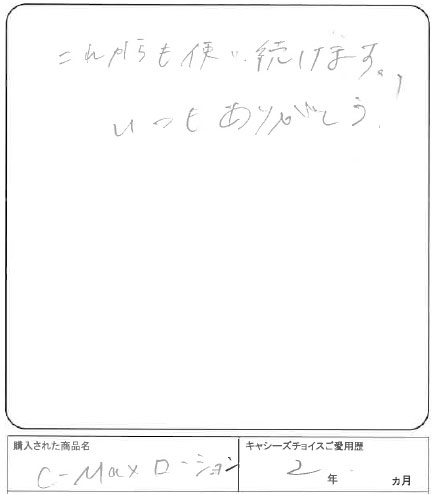 これからも使い続けます。
いつもありがとう
購入された商品名
C-Maxローション
キャシーズチョイスご愛用歴
2年 ヵ月